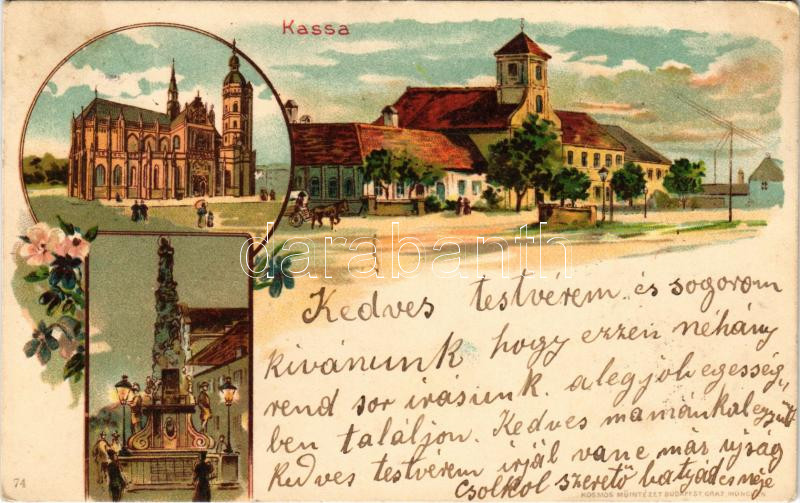 Kassa
darabanth
Kedves testvérem és sogorom
kivánunk hogy ezzen néhány
rend sor irásunk a legjob egesség,,
ben találjon. Kedves mamánkal együtt
kedves testvérem irjál vane már ujság
Csolkol szerető batyad és néje
74
KOSMOS MŰINTÉZET BUDAPEST GRAZ MÜNCHEN